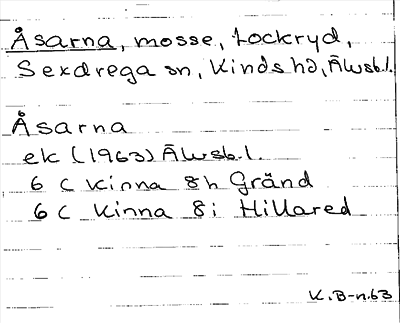 Åsarna, mosse, Lockryd,
Sexdrega sn, Kinds hd, Älvsb. l.
Åsarna
ek (1963) Älvsb. l.
6 C Kinna 8h Gränd
6 C Kinna 8i Hillared
K.B-n.63